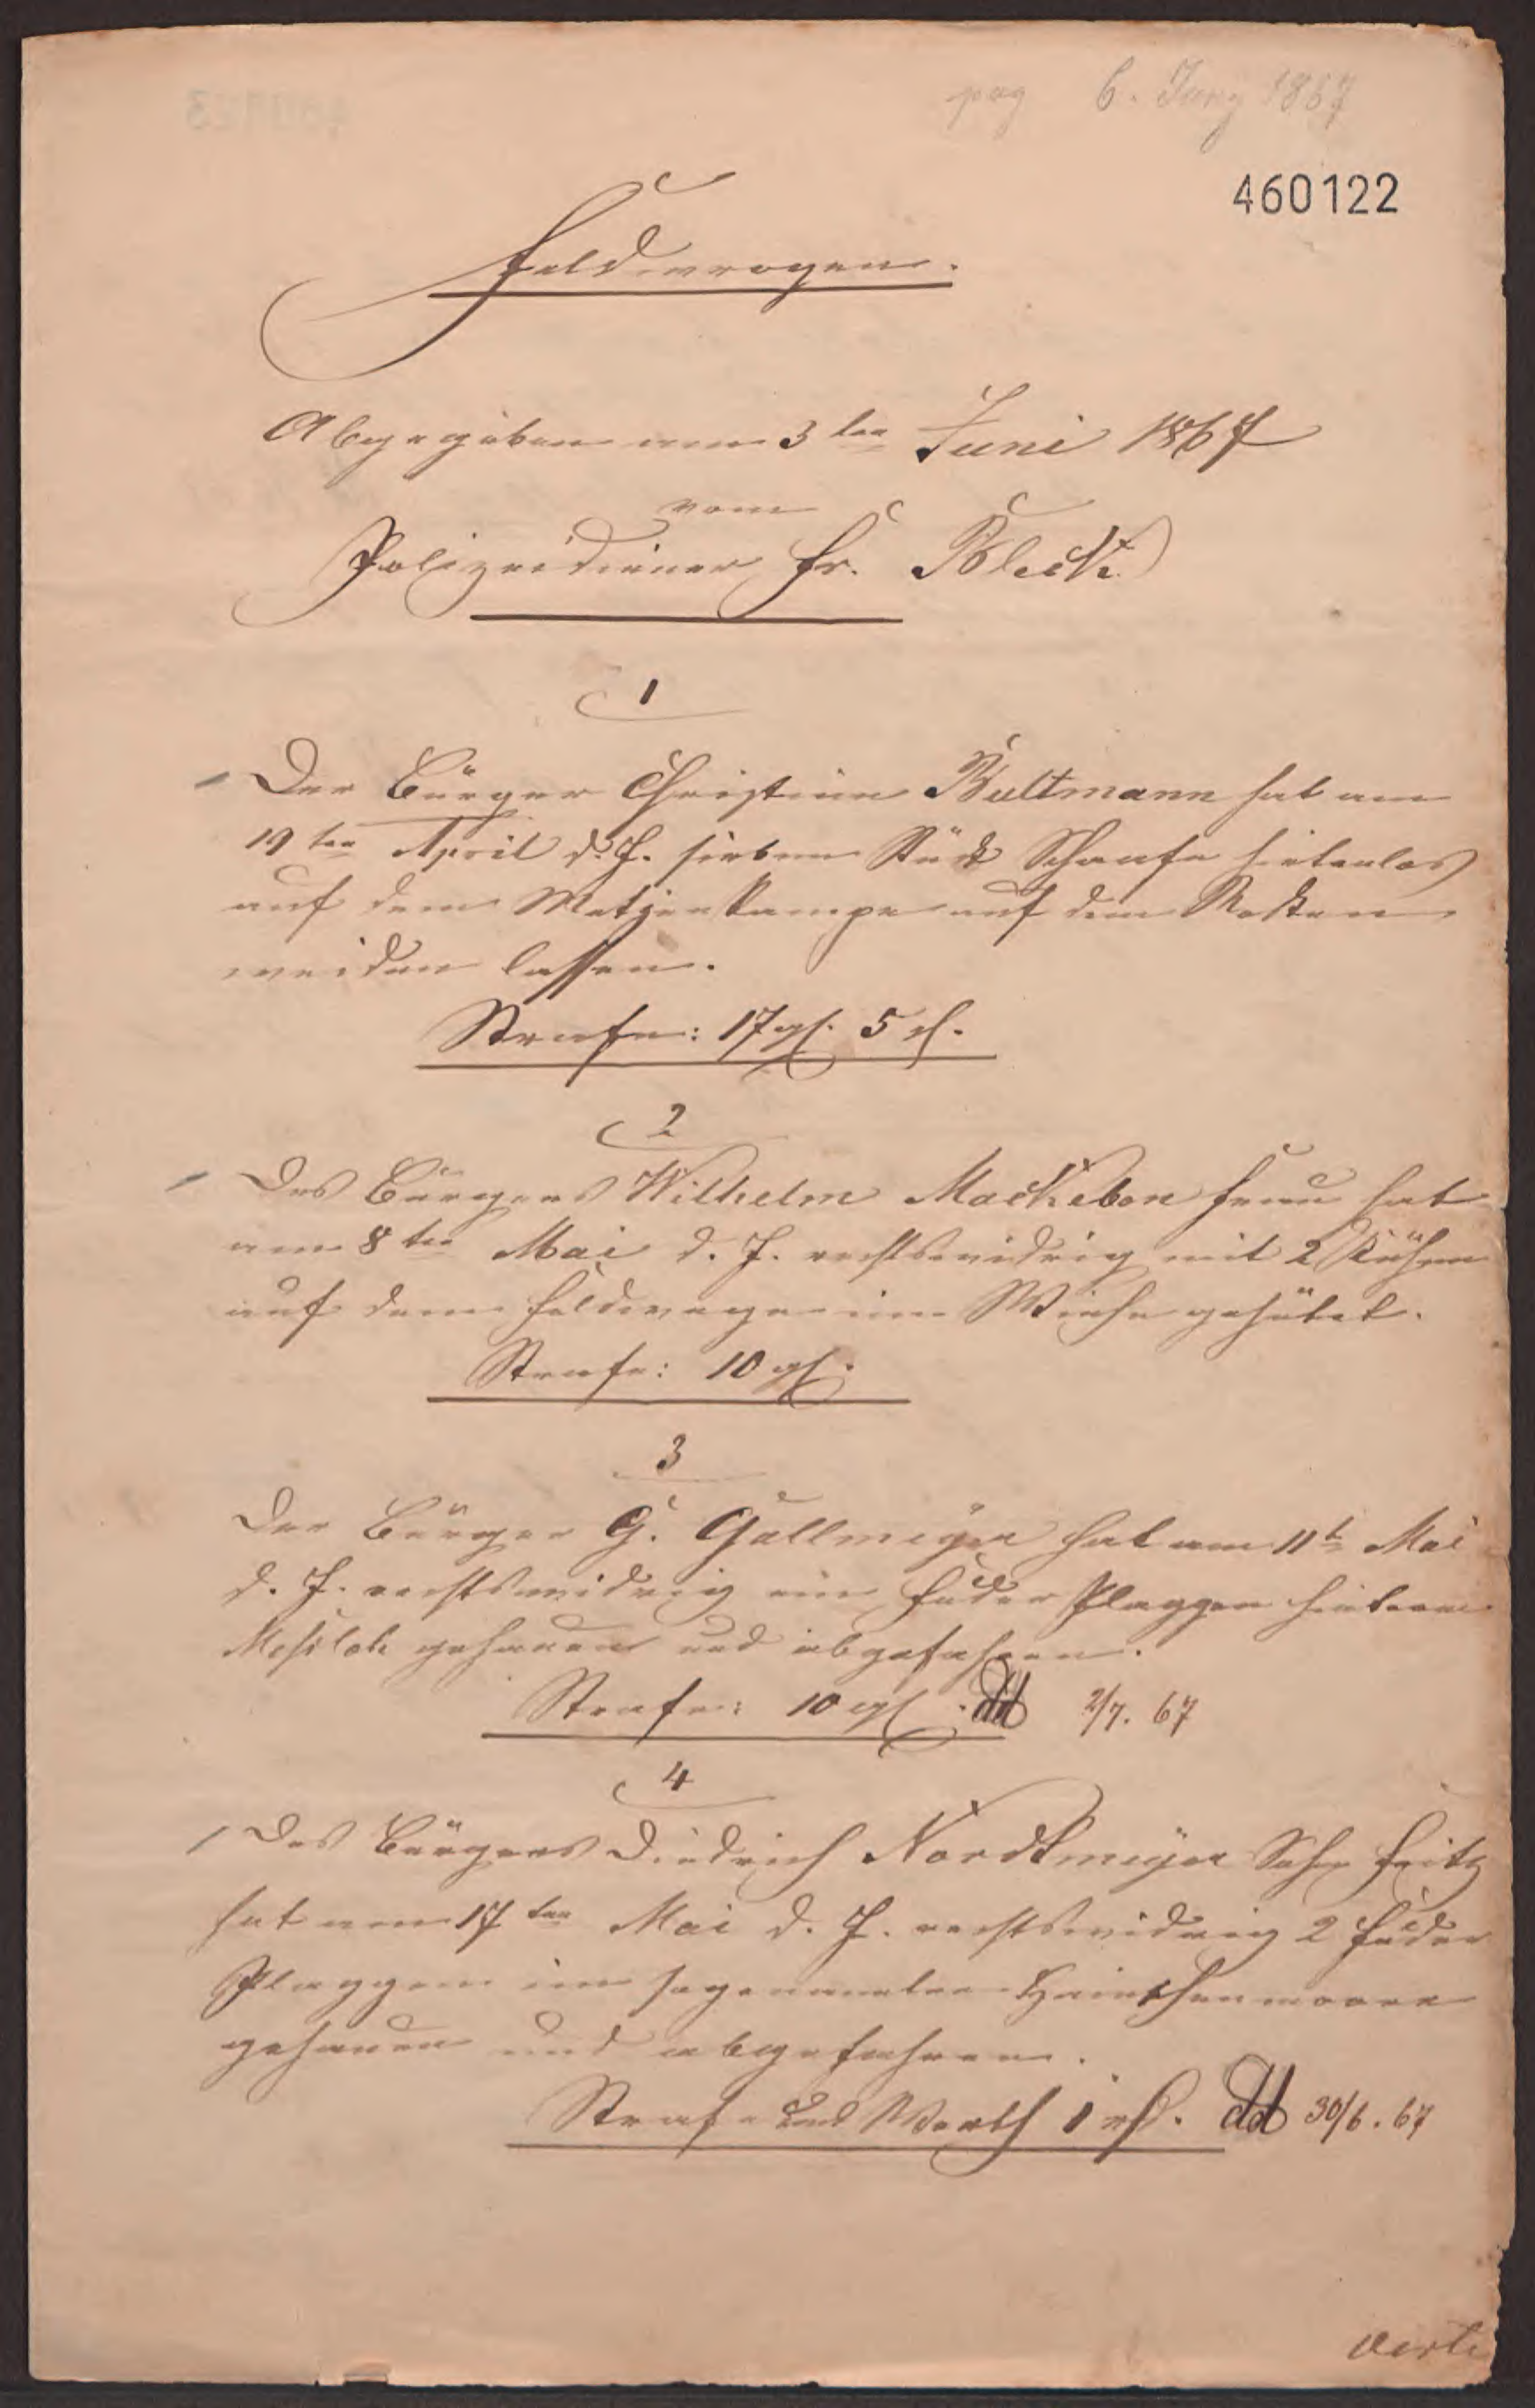 pag 6. Juny 1867
460122
Feldwrogen.
Abgegeben am 3ten Juni 1867
vom
Polizeidiener Fr. Bleck
1
Der Bürger Christian Bultmann hat am
19ten April d. J. sieben Stück Schaafe hirtenlos
auf dem Metzenkampe auf dem Rocken
weiden lassen.
Strafe: 17 gf. 5 
2
Des Bürgers Wilhelm Mackeben Frau hat
am 8ten Mai d. J. rechtswidrig mit 2 Kühen
auf dem Feldwege im gehütet.
Strafe: 10 gf.
3
Der Bürger G. Gallmeyer hat am 11t Mai
d. J. rechtswidrig ein Fuder Plaggen hinterm
gehauen und abgefahren.
Strafe: 10 gf. dd 2/7. 67
4
Des Bürgers Diedrich Nordtmeyer Sohn Fritz
hat am 17ten Mai d. J. rechtswidrig 2 Fuder
Plaggen im sogenannten Hainschenmoore
gehauen und abgefahren.
Strafe und Werth 1 rf. dd 30/6. 67
verte